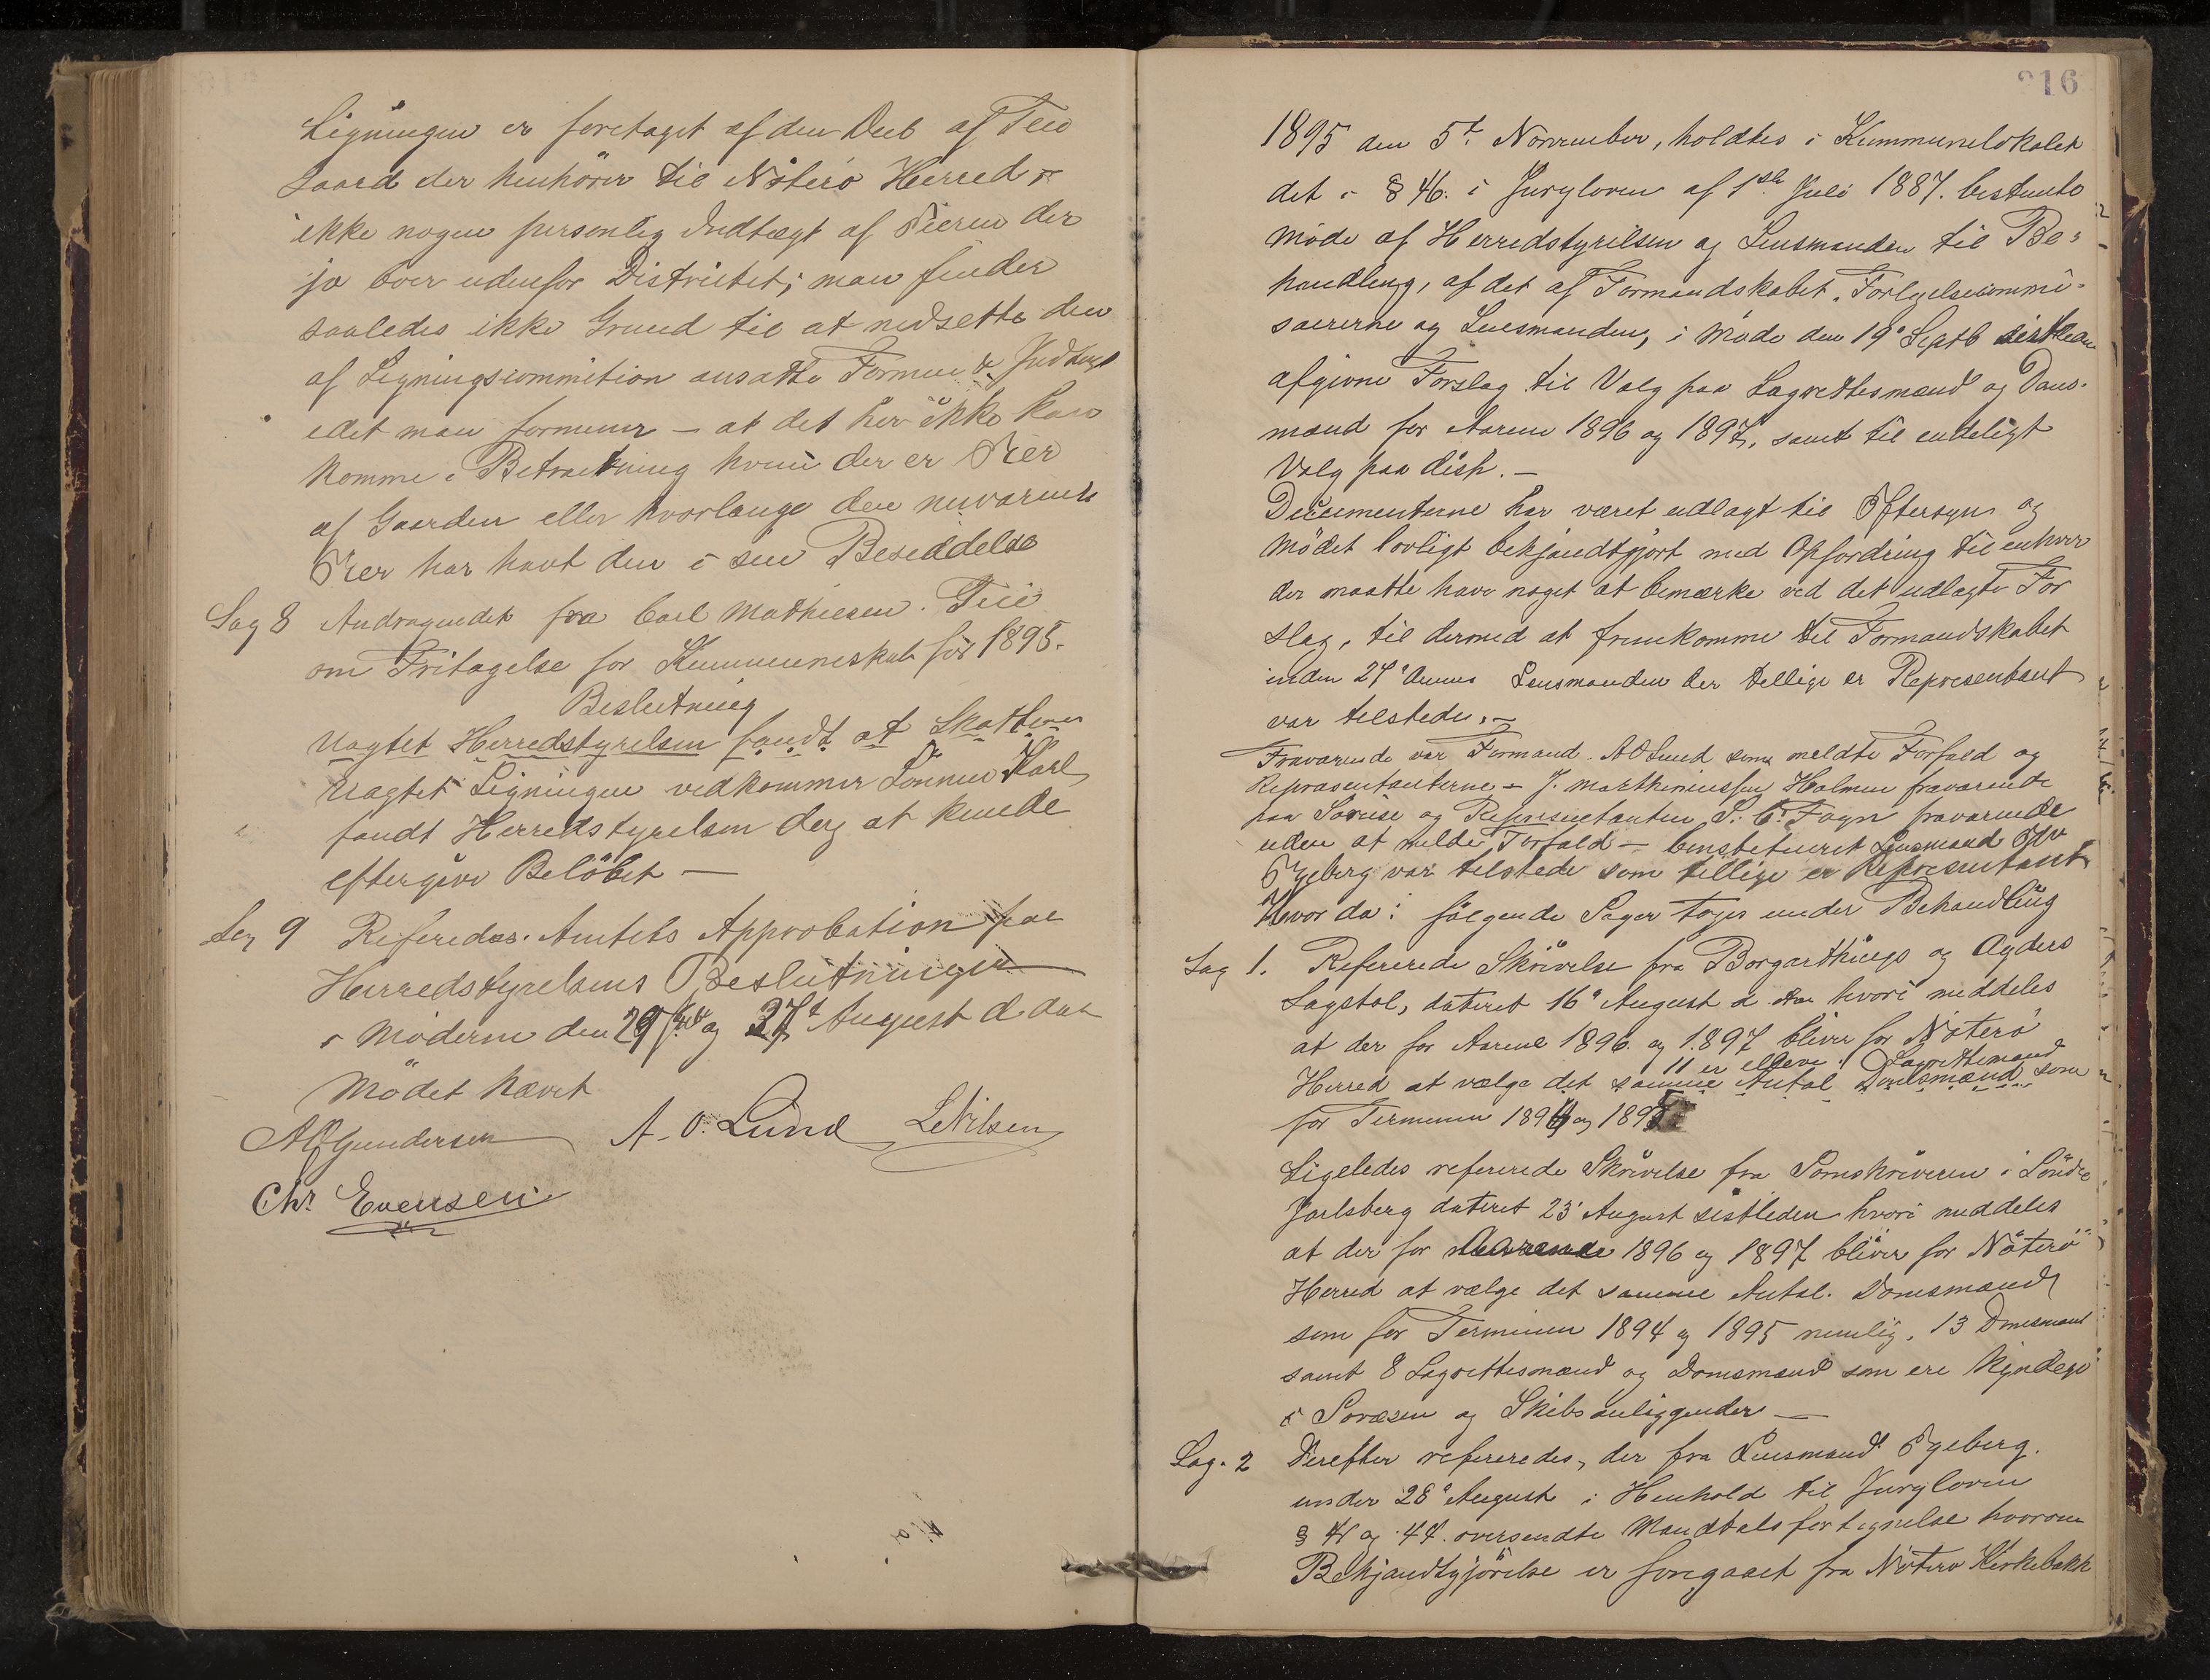 Ligningen er foretaget af den Deel af Teie
Gaard der henhörer til Nöterö Herred &
ikke nogen personlig Indtægt af Eieren der
jo boer udenfor Districtet; man finder
saaledes ikke Grund til at nedsette den
af Ligningscommition ansatte Formue & Indtægt
idet man formener — at det her ikke kan
komme i Betraktning hvem der er Eier
af Gaarden eller hvorlænge den nuværende
Eier har havt den i sin Besiddelse
Sag 8 Andragendet fra Carl Mathiesen. Teie
om Fritagelse for Kommuneskat for 1895.
Beslutning
Uagtet Herredstyrelsen fandt at Skatten
Uagtet Ligningen vedkommer Sönnen Karl
fandt Herredstyrelsen dog at kunde
eftergive Belöbet —
Sag 9 Referedes. Amtets Approbation paa
Herredstyrelsens Beslutninger
i Möderne den 29 og 27t August d. aar
Mödet hævet
A Gundersen A. O. Lund L Nilsen
Chr Evensen
216
1895 den 5t November, holdtes i Kommunelokalet
det i § 46. i Juryloven af 1ste Juli 1887. bestemte
Möde af Herredstyrelsen og Lensmanden til Be-
handling, af det af Formandskabet, Forligelsescommi-
særerne og Lensmanden, i Möde den 19de Septb sistleden
afgivne Forslag til Valg paa Lagrettesmænd og Doms-
mænd for Aarene 1896 og 1897, samt til endeligt
Valg paa disse. —
Documenterne har været udlagt til Eftersyn og
Mödet lovligt bekjendtgjort med Opfordring til enhver
der maatte have noget at bemærke ved det udlagte For
slag, til dermed at fremkomme til Formandskabet
inden 24de dennes Lensmanden der tillige er Representant
var tilstede. —
Fraværende var Formand. A O Lund som meldte Forfald og
Repræsentanterne — J. Marthiniussen Holmen fraværende
paa Soreise og Representanten S. C. Fogn fraværende
uden at melde Forfald — Constitueret Lensmand
Ygeberg var tilstede som tillige er Representant
Hvor da: fölgende Sager toges under Behandling
Sag 1. Refererede Skrivelse fra Borgarthings og Agders
Lagstol, dateret 16de August d. Aar hvori meddeles
at der for Aarene 1896 og 1897 bliver for Nöterö
11 er elleve Lagrettemænd
Herred at vælge det samme Antal Domsmænd som
for Terminen 1894 og 1895
Ligeledes refererede Skrivelse fra Sorenskriveren i Söndre
Jarlsberg dateret 23de August sistleden hvori meddeles
at der for Aarene 1896 og 1897 bliver for Nöterö
Herred at vælge det samme Antal. Domsmænd
som for Terminen 1894 og 1895 nemlig. 13 Domsmænd
samt 8 Lagrettesmænd og Domsmænd som ere kyndige
i Sovæsen og Skibsanliggender —
Sag. 2 Derefter refereredes, der fra Lensmand Ygeberg.
under 28de August i Henhold til Juryloven
§ 41 og 44. oversendte Mandtalsfortegnelse hvorom
Bekjendtgjörelse er foregaaet fra Nöterö Kirkebakke